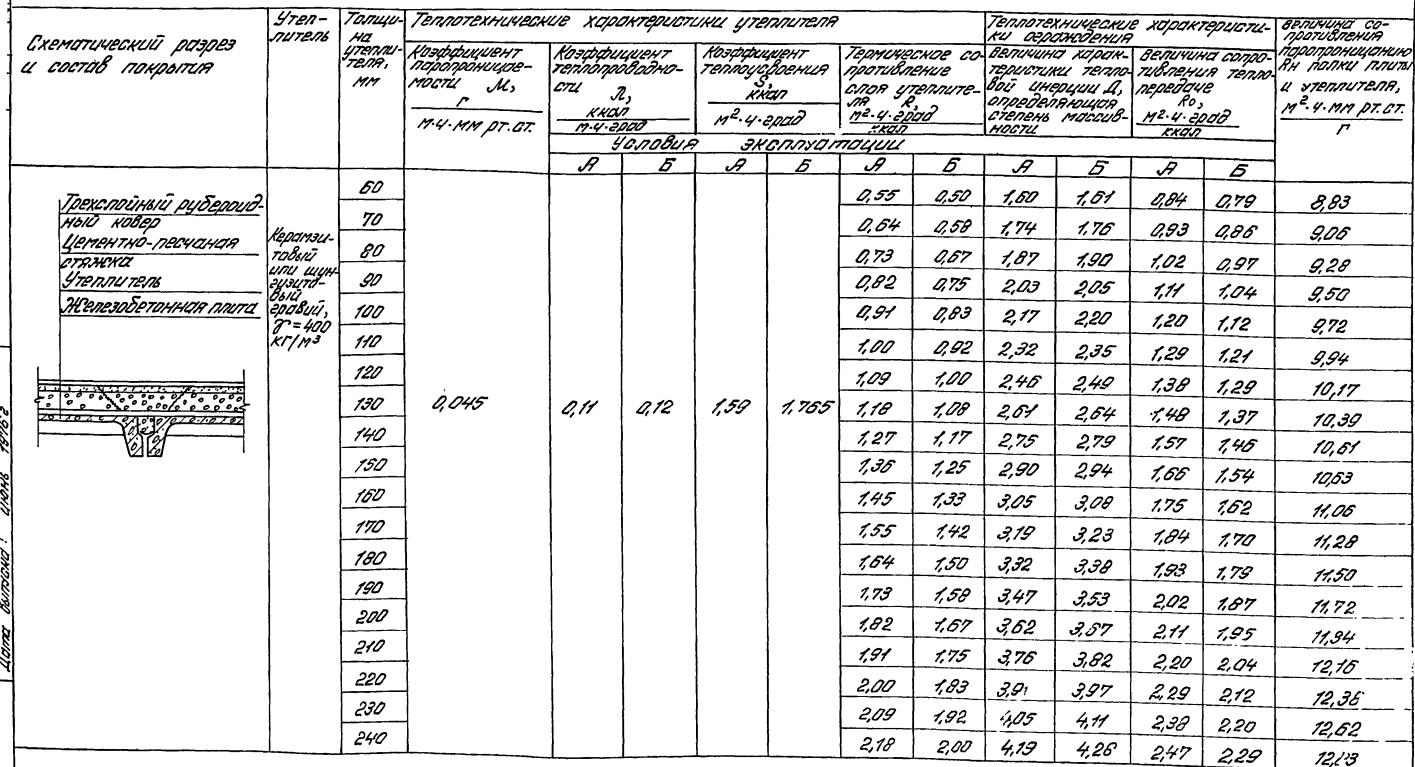 Схематический разрез и состав покрытия
Утеплитель
Толщина утеплителя, мм
Теплотехнические характеристики утеплителя
Коэффициент паропроницаемости М, г / м·ч·мм рт.ст.
Коэффициент теплопроводности λ, ккал / м·ч·град
Коэффициент теплоусвоения S, ккал / м²·ч·град
Термическое сопротивление слоя утеплителя R, м²·ч·град / ккал
Теплотехнические характеристики ограждения
Величина характеристики тепловой инерции Д, определяющая степень массивности
Величина сопротивления теплопередаче Rо, м²·ч·град / ккал
Величина сопротивления паропроницанию Rн полки плиты и утеплителя, м²·ч·мм рт.ст. / г
Условия эксплуатации
А Б А Б А Б А Б А Б
Трехслойный рубероидный ковер
Цементно-песчаная стяжка
Утеплитель
Железобетонная плита
Керамзитовый или шунгизитовый гравий, γ=400 кг/м³
0,045 0,11 0,12 1,59 1,765
60 0,55 0,50 1,60 1,61 0,84 0,79 8,83
70 0,64 0,58 1,74 1,76 0,93 0,86 9,06
80 0,73 0,67 1,87 1,90 1,02 0,97 9,28
90 0,82 0,75 2,03 2,05 1,11 1,04 9,50
100 0,91 0,83 2,17 2,20 1,20 1,12 9,72
110 1,00 0,92 2,32 2,35 1,29 1,21 9,94
120 1,09 1,00 2,46 2,49 1,38 1,29 10,17
130 1,18 1,08 2,61 2,64 1,48 1,37 10,39
140 1,27 1,17 2,75 2,79 1,57 1,46 10,61
150 1,36 1,25 2,90 2,94 1,66 1,54 10,63
160 1,45 1,33 3,05 3,08 1,75 1,62 11,06
170 1,55 1,42 3,19 3,23 1,84 1,70 11,28
180 1,64 1,50 3,32 3,38 1,93 1,79 11,50
190 1,73 1,58 3,47 3,53 2,02 1,87 11,72
200 1,82 1,67 3,62 3,67 2,11 1,95 11,94
210 1,91 1,75 3,76 3,82 2,20 2,04 12,16
220 2,00 1,83 3,91 3,97 2,29 2,12 12,36
230 2,09 1,92 4,05 4,11 2,38 2,20 12,62
240 2,18 2,00 4,19 4,26 2,47 2,29
Дата выпуска: июнь 1976г